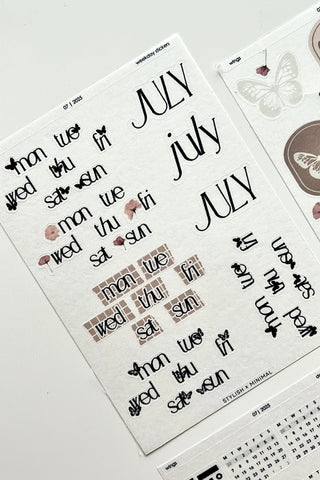 07 | 2025
weekday stickers
JULY
mon tue fri
wed thu
sat sun
july
mon tue fri
wed thu
sat sun
JULY
mon tue
wed thu fri
sat sun
mon tue fri
wed thu
sat sun
STYLISH X MINIMAL
wings
mon tue fri
wed thu
sat sun
wings
07 | 2025
M T W T F S S